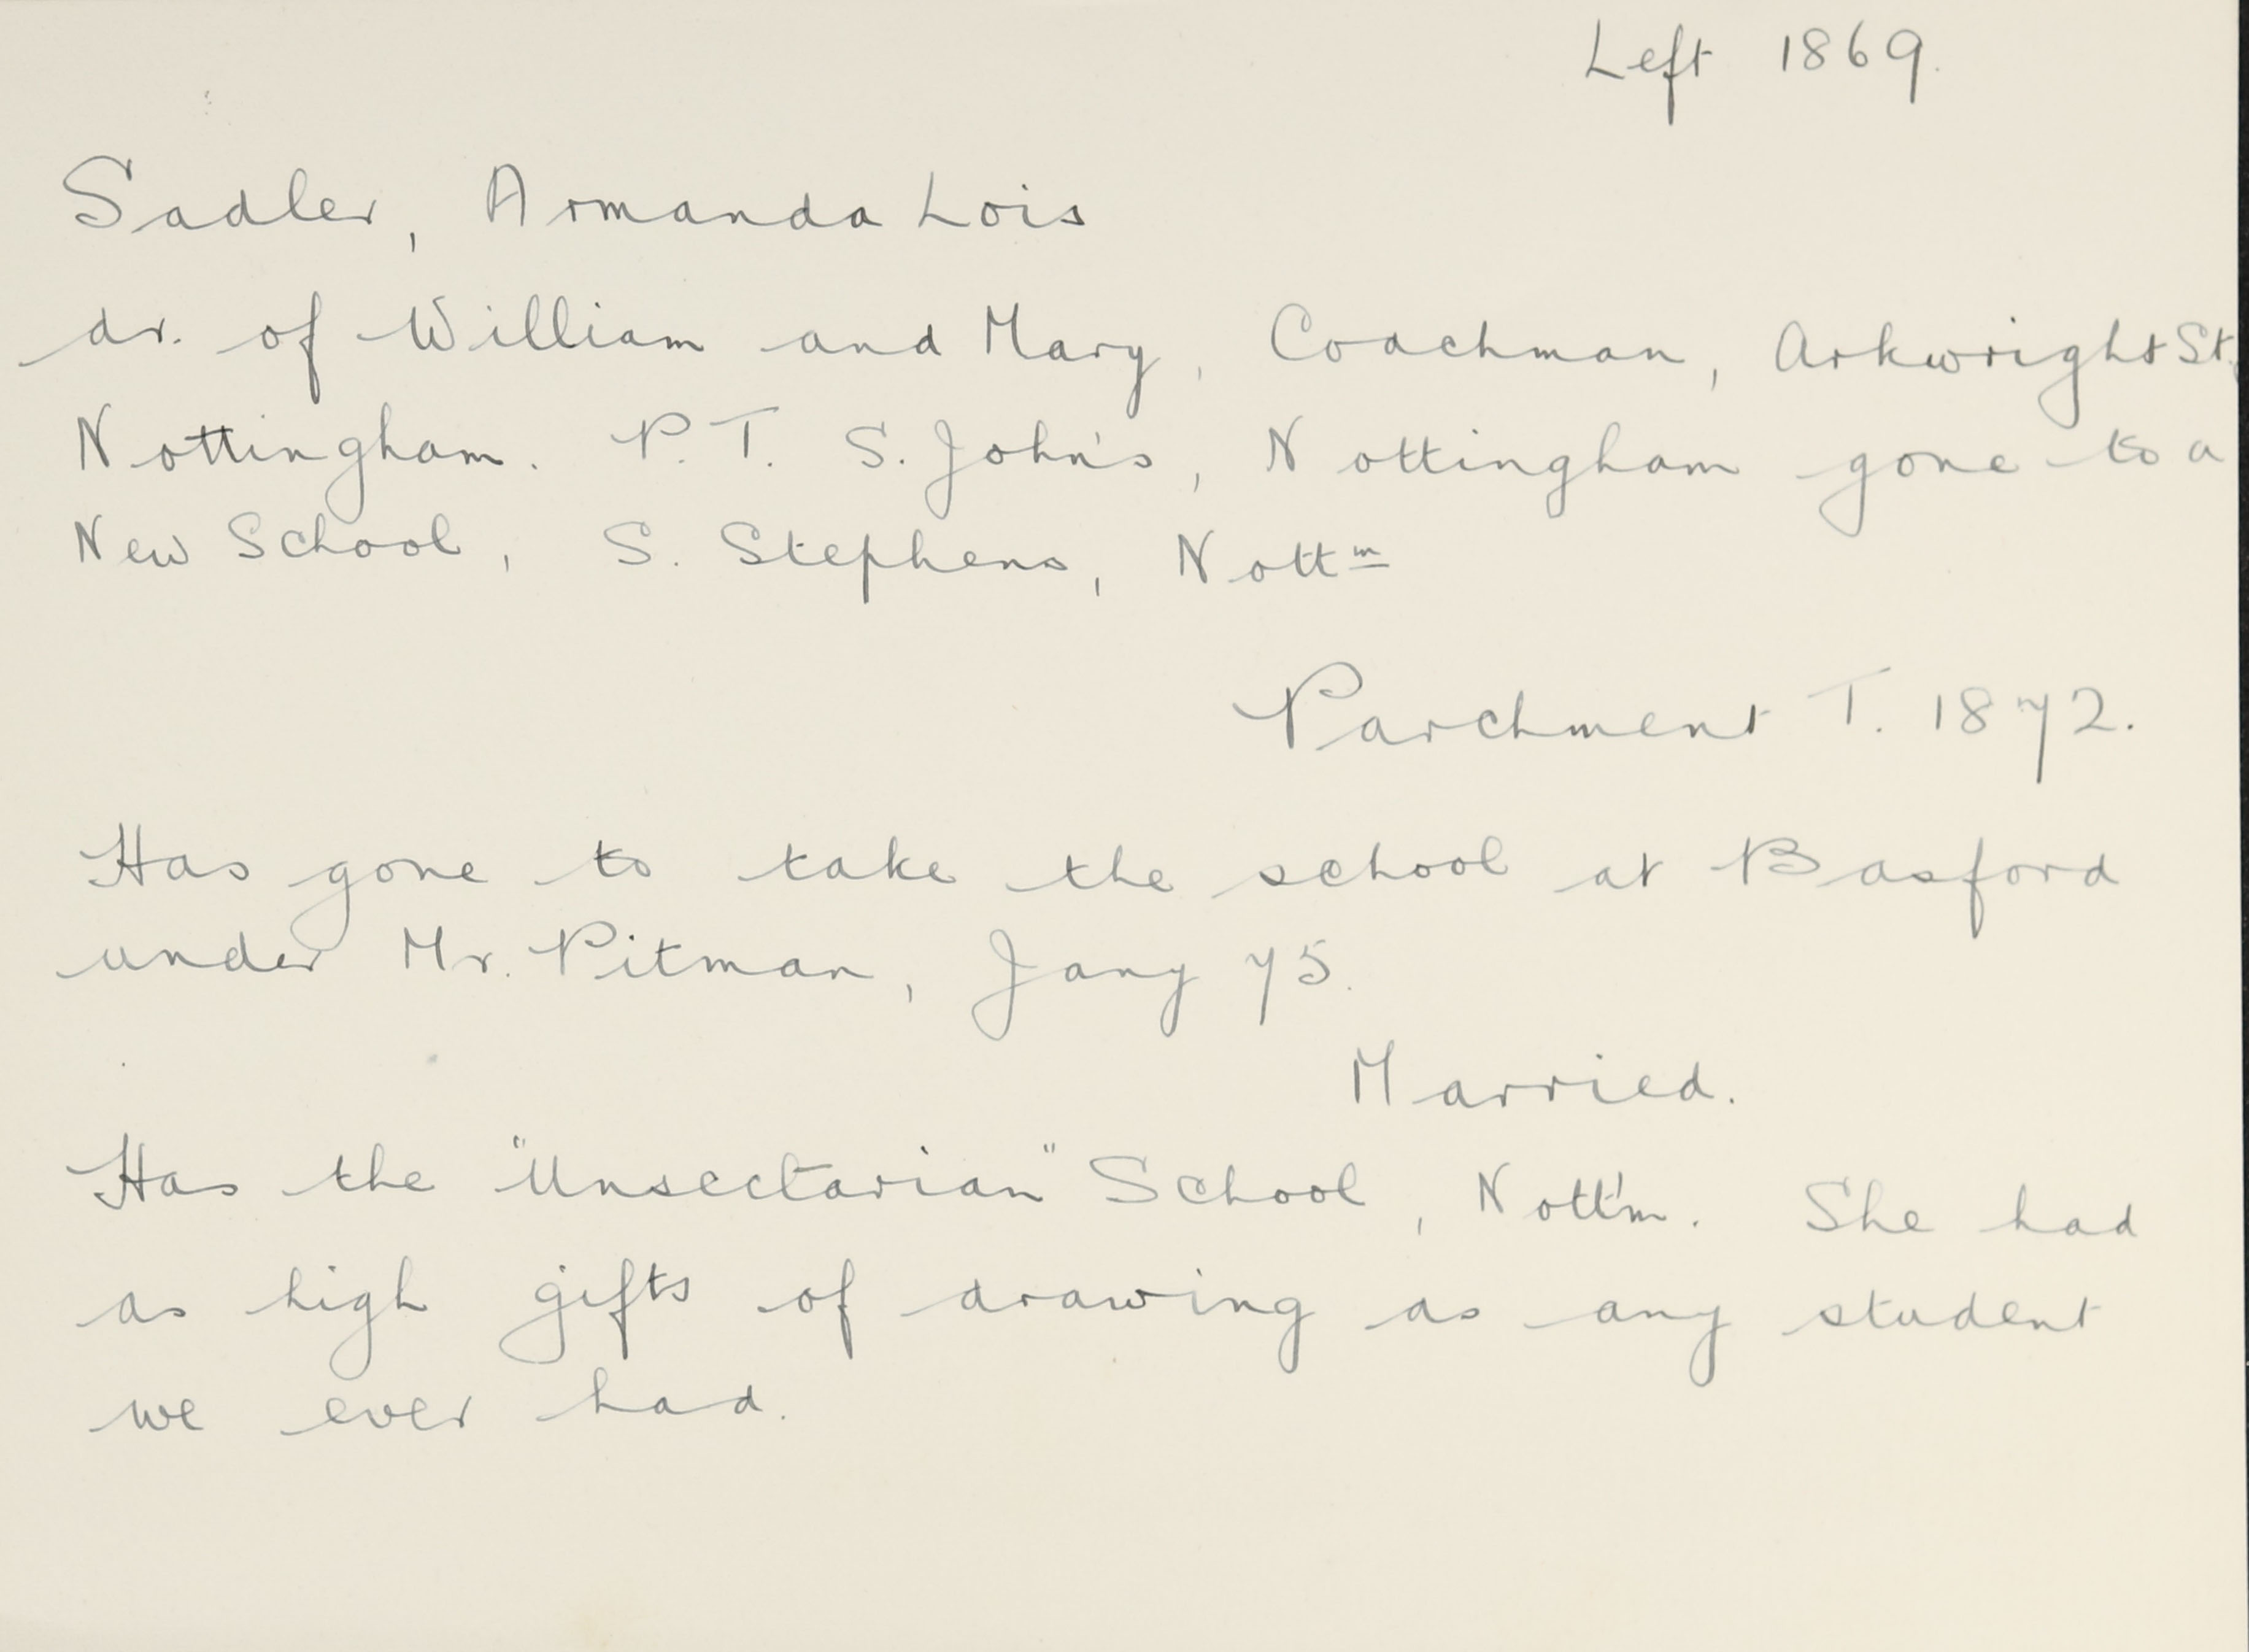 Left 1869.
Sadler, Armanda Lois
dr. of William and Mary, Coachman, Arkwright St.,
Nottingham. P.T. S. John's, Nottingham gone to a
New School, S. Stephens, Nottm
Parchment T. 1872.
Has gone to take the school at Basford
under Mr. Pitman, Jany 75.
Married.
Has the "Unsectarian" School, Nott'm. She had
as high gifts of drawing as any student
we ever had.